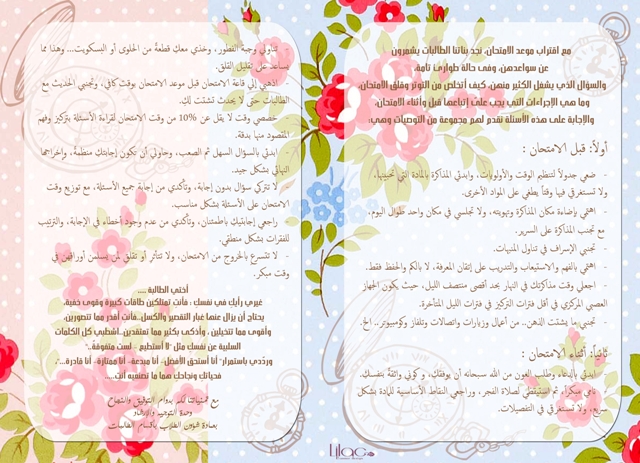 مع اقتراب موعد الامتحان، نجد بناتنا الطالبات يشمرون
عن سواعدهن، وفي حالة طوارئ تامة،
والسؤال الذي يشغل الكثير منهن، كيف أتخلص من التوتر وقلق الامتحان،
وما هي الإجراءات التي يجب علي إتباعها قبل وأثناء الامتحان،
والإجابة على هذه الأسئلة نقدم لهم مجموعة من التوصيات وهي:
أولاً: قبل الامتحان :
- ضعي جدولاً لتنظيم الوقت والأولويات، وابدئي المذاكرة بالمادة التي تحبينها،
ولا تستغرقي فيها وقتاً يطغى على المواد الأخرى.
- اهتمي بإضاءة مكان المذاكرة وتهويته، ولا تجلسي في مكان واحد طوال اليوم،
مع تجنب المذاكرة على السرير.
- تجنبي الإسراف في تناول المنبهات.
- اهتمي بالفهم والاستيعاب والتدريب على إتقان المعرفة، لا بالكم والحفظ فقط.
- اجعلي وقت مذاكرتك في النهار بحد أقصى منتصف الليل، حيث يكون الجهاز
العصبي المركزي في أقل فترات التركيز في فترات الليل المتأخرة.
- تجنبي ما يشتت الذهن.. من أعمال وزيارات واتصالات وتلفاز وكومبيوتر.. الخ.
ثانياً: أثناء الامتحان :
- ابدئي بالدعاء وطلب العون من الله سبحانه أن يوفقك، وكوني واثقة بنفسك.
- نامي مبكراً ثم استيقظي لصلاة الفجر، وراجعي النقاط الأساسية للمادة بشكل
سريع، ولا تستغرقي في التفصيلات.
- تناولي وجبة الفطور، وخذي معك قطعة من الحلوى أو البسكويت... وهذا مما
يساعد على تقليل القلق.
- اذهبي إلى قاعة الامتحان قبل موعد الامتحان بوقت كافي، وتجنبي الحديث مع
الطالبات حتى لا يحدث تشتت لك.
- خصصي وقت لا يقل عن 10% من وقت الامتحان لقراءة الأسئلة بتركيز وفهم
المقصود منها بدقة.
- ابدئي بالسؤال السهل ثم الصعب، وحاولي أن تكون إجابتك منظمة، واخراجها
النهائي بشكل جيد.
- لا تتركي سؤال بدون إجابة، وتأكدي من إجابة جميع الأسئلة، مع توزيع وقت
الامتحان على الأسئلة بشكل مناسب.
- راجعي إجابتك باطمئنان، وتأكدي من عدم وجود أخطاء في الإجابة، والترتيب
للفقرات بشكل منطقي.
- لا تتسرع بالخروج من الامتحان، ولا تتأثر أو تقلق لمن يسلمن أوراقهن في
وقت مبكر.
أختي الطالبة ....
غيري رأيك في نفسك : فأنت تمتلكين طاقات كبيرة وقوى خفية،
يحتاج أن يزال عنها غبار التقصير والكسل..فأنت أقدر مما تتصورين،
وأقوى مما تتخيلين ، وأذكى بكثير مما تعتقدين..اشطبي كل الكلمات
السلبية عن نفسك مثل "لا أستطيع - لست متفوقة.."
وردّدي باستمرار" أنا أستحق الأفضل- أنا مبدعة- أنا ممتازة- أنا قادرة...".
فحياتك ونجاحك هما ما تصنعيه أنت.....
مع تمنياتنا لكم بدوام التوفيق والنجاح
وحدة التوجيه والإرشاد
بعمادة شؤون الطلاب بأقسام الطالبات